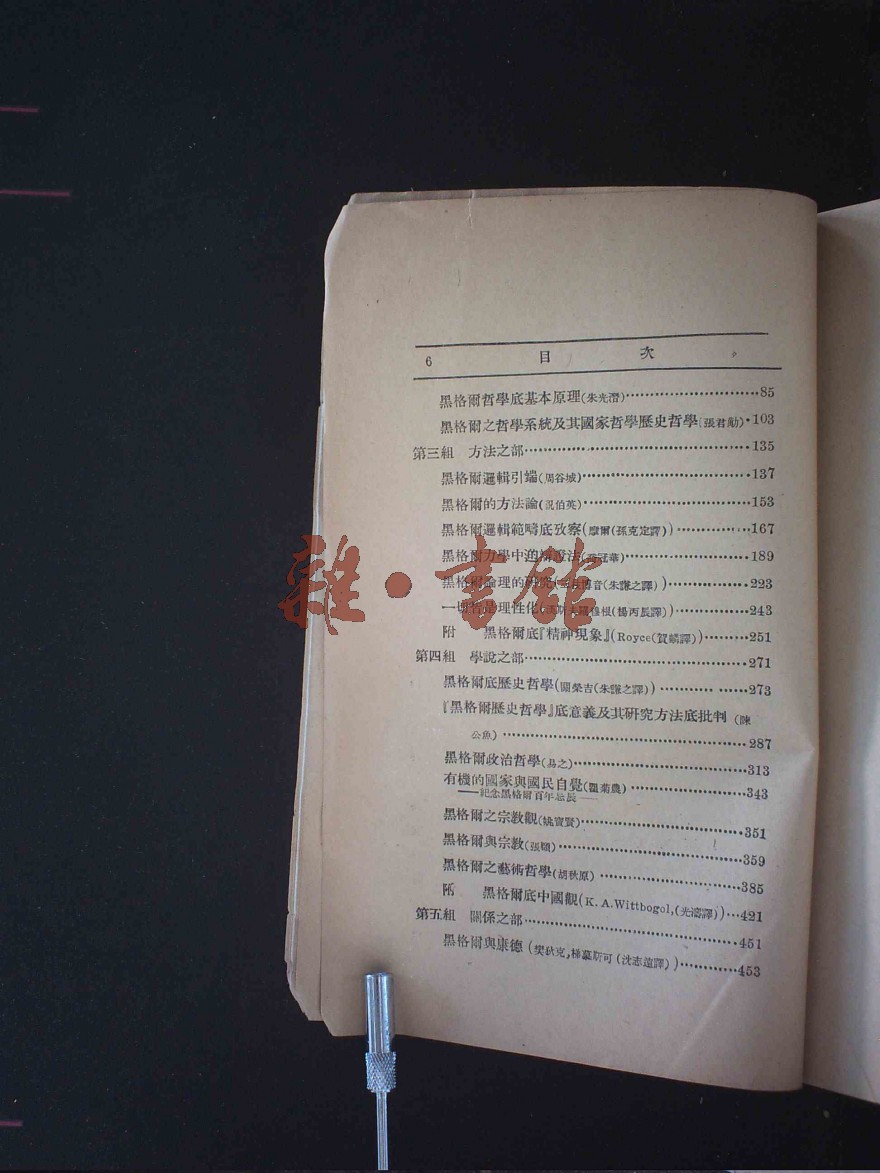 6 目 次
黑格爾哲學底基本原理(朱光潛)……85
黑格爾之哲學系統及其國家哲學歷史哲學(張君勱)·103
第三組 方法之部……135
黑格爾邏輯引端(周谷城)……137
黑格爾的方法論(況伯英)……153
黑格爾邏輯範疇底攷察(摩爾(孫克定譯))……167
黑格爾力學中 辯證法( 冠華)……189
黑格爾論理的研究( 博音(朱謙之譯))……223
一切 是理性化( 根(楊丙辰譯))……243
附 黑格爾底『精神現象』(Royce(賀麟譯))……251
第四組 學說之部……271
黑格爾底歷史哲學(關榮吉(朱謙之譯))……273
『黑格爾歷史哲學』底意義及其研究方法底批判(陳
公魚)……287
黑格爾政治哲學(易之)……313
有機的國家與國民自覺(瞿菊農)……343
——紀念黑格爾百年忌辰——
黑格爾之宗教觀(姚寶賢)……351
黑格爾與宗教(張頤)……359
黑格爾之藝術哲學(胡秋原)……385
附 黑格爾底中國觀(K. A. Wittbogol,(光濤譯))…421
第五組 關係之部……451
黑格爾與康德(樊狄克,梯慕斯可(沈志遠譯))……453
雜·書館